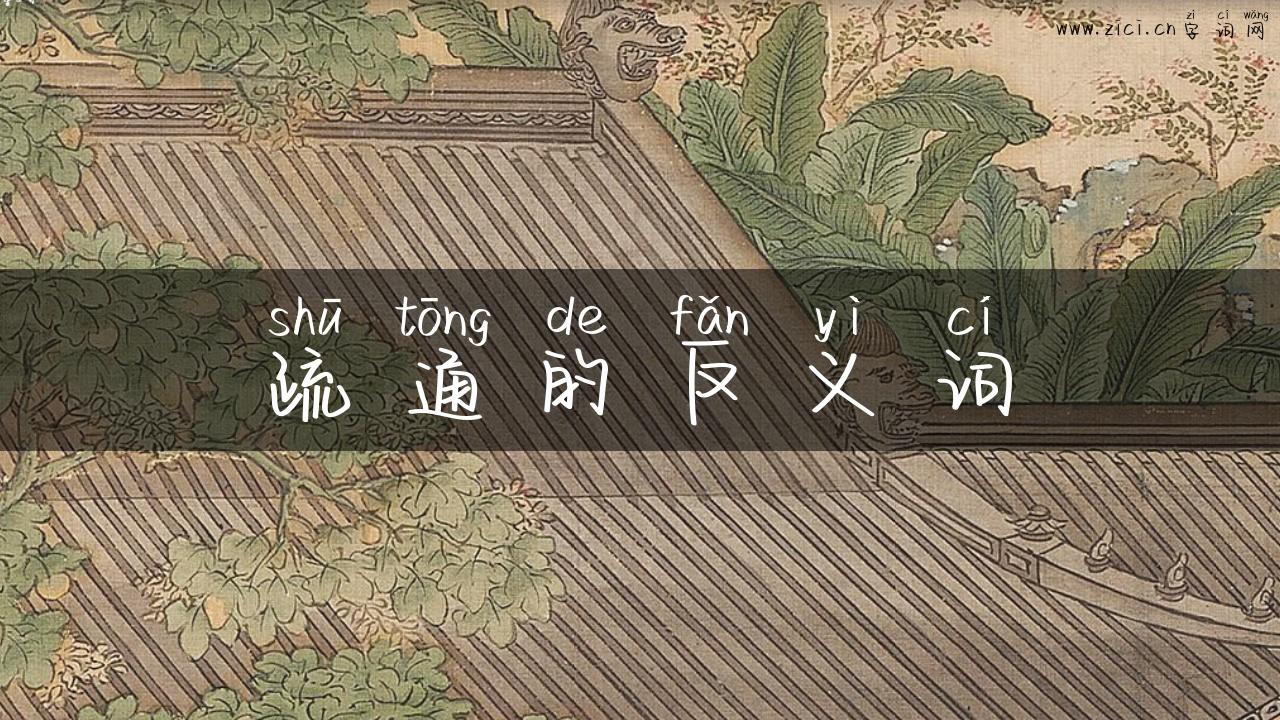 zì cí wǎng
www.zici.cn 字词网
shū tōng de fǎn yì cí
疏通的反义词